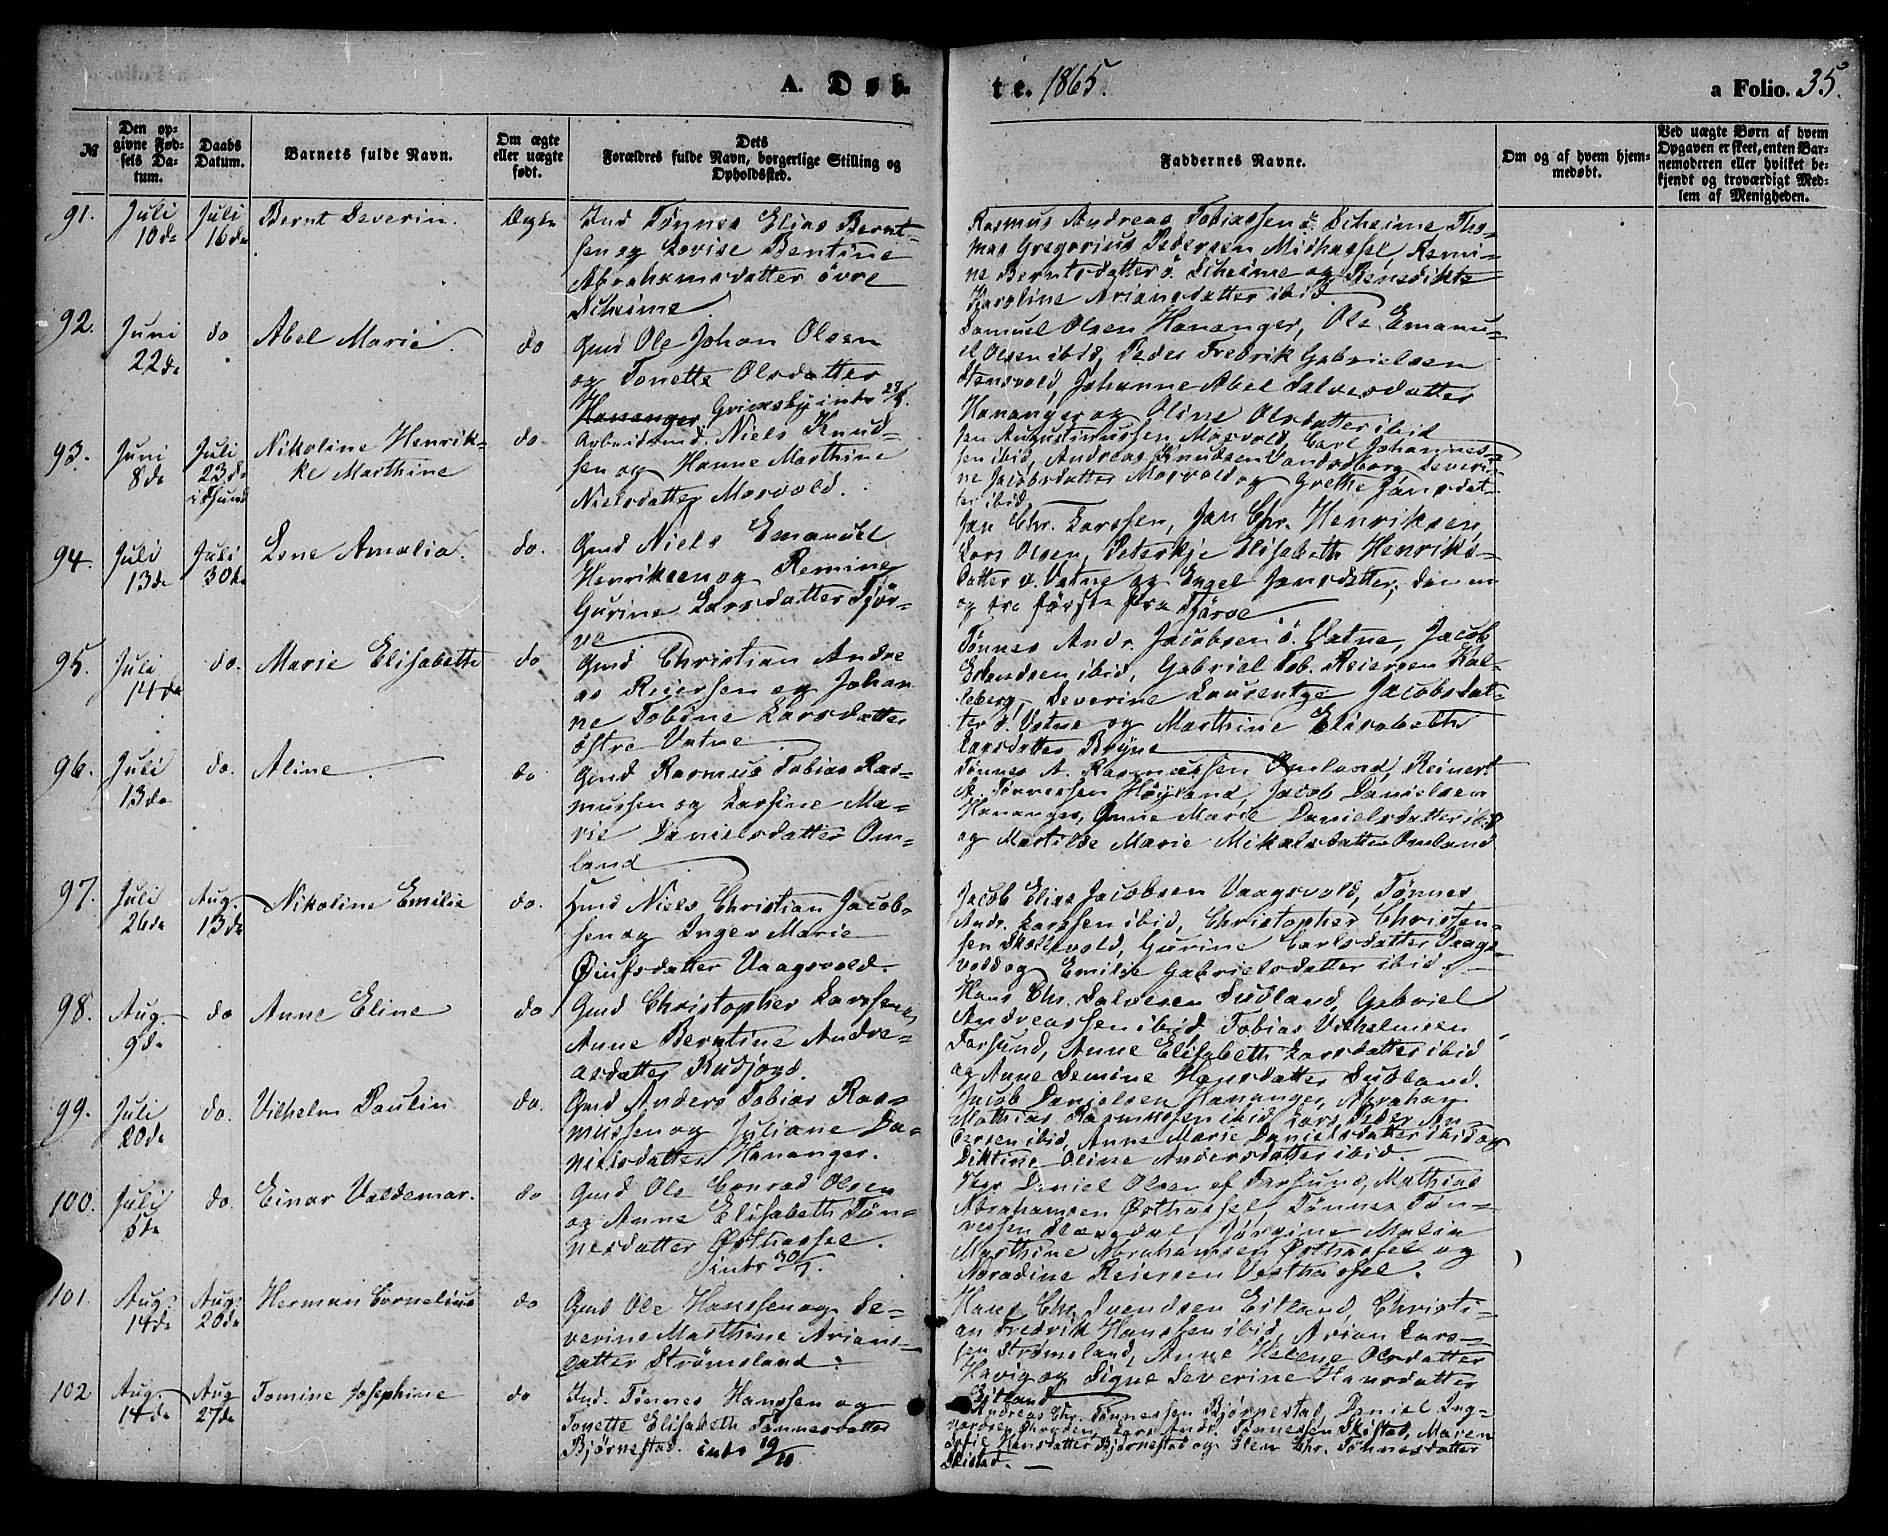 A. Døb-
te. 1865.
a Folio. 35.
№
Den op-
givne Fød-
sels Da-
tum.
Daabs
Datum.
Barnets fulde Navn.
Om ægte
eller uægte
født.
Dets
Forældres fulde Navn, borgerlige Stilling og
Opholdssted.
Faddernes Navne.
Om og af hvem hjem-
medøbt.
Ved uægte Børn af hvem
Opgaven er skeet, enten Bar-
nemoderen eller hvilket be-
kjendt og troværdigt Med-
lem af Menigheden.
91.
Juli
10de
Juli
16de
Bernt Severin.
Ægte
Ind Tønnes Elias Bernt-
sen og Lovise Bentine
Abrahamsdatter övre
Skeime.
Rasmus Andreas Tobiassen ö. Skeime, Tho-
mas Gregorius Pedersen Midhassel, Remi-
ne Berntsdatter ö. Skeime og Benedikte
Karoline Ariansdatter ibid
92.
Juni
22de
do
Abel Marie.
do
Gmd Ole Johan Olsen
og Tonette Olsdatter
Hananger Grimsby intr
Samuel Olsen Hananger, Ole Emanu-
el Olsen ibid, Peder Fredrik Gabrielsen
Stensvold, Johanne Abel Salvesdatter
Hananger og Oline Olsdatter ibid
93.
Juni
8de
Juli
23de
i Fsund
Nikoline Henrik-
ke Marthine
do
Arbeidsmd. Niels Knud-
sen og Hanne Marthine
Nielsdatter Mosvold.
Jen Augustinussen Mosvold, Carl Johannes-
sen ibid, Andreas Knudsen Vandsborg, Severi-
ne Jacobsdatter Mosvold og Grethe Jansdat-
ter ibid
94.
Juli
13de
Juli
30de
Lene Amalia.
do.
Gmd Niels Emanuel
Henriksen og Remine
Gurine Larsdatter Tjör-
ve
Jan Chr. Larssen, Jan Chr. Henriksen,
Lars Olsen, Peterkje Elisabeth Henriks-
datter v. Vatne og Engel Jansdatter, den en
og tre förste fra Tjörve.
95.
Juli
14de
do.
Marie Elisabeth
do
Gmd Christian Andre
as Reiersen og Johan
ne Tobine Larsdatter
östre Vatne.
Tønnes Andr. Jacobsen ö. Vatne, Jacob
Erlandsen ibid, Gabriel Tob. Reiersen Kal-
leberg, Severine Laurentze Jacobsdat-
ter ö. Vatne og Marthine Elisabeth
Larsdatter Bryne
96.
Juli
13de
do.
Aline.
do
Gmd Rasmus Tobias Ras-
mussen og Lassine Ma-
rie Danielsdatter Om-
land
Tønnes A. Rasmussen Omland, Reinert
A. Tønnessen Höyland, Jacob Danielsen
Hananger, Anne Marie Danielsdatter ibid
og Martilde Marie Mikalsdatter Omland
97.
Juli
26de
Aug.
13de
Nikoline Emilie
do.
Hmd Niels Christian Jacob-
sen og Inger Marie
Vaagsvold.
Jacob Elias Jacobsen Vaagsvold, Tønnes
Andr. Larssen ibid, Christopher Christen-
sen Skollevold, Gurine Carlsdatter Vaags-
vold og Emilie Gabrielsdatter ibid.
98.
Aug.
9de
do
Anne Eline
do
Gmd Christopher Larssen og
Anne Berntine Andre-
asdatter Rudjord.
Hans Chr. Salvesen Sudland, Gabriel
Andreassen ibid, Tobias Vilhelmsen
Farsund, Anne Elisabeth Larsdatter ibid
og Anne Semine Hansdatter Sudland.
99.
Juli
20de
do.
Vilhelm Paulin
do.
Gmd Anders Tobias Ras-
mussen og Juliane Da-
nielsdatter Hananger.
Jacob Danielsen Hananger, Abraham
Mathias Rasmussen ibid, Lars Peder An-
dersen ibid, Anne Marie Danielsdatter ibid og
Diktine Oline Andersdatter ibid.
100.
Juli
5de
do.
Einar Valdemar.
do
Gmd Ole Conrad Olsen
og Anne Elisabeth Tøn-
nesdatter Østhassel.
intr 30/7.
Daniel Olsen af Farsund, Mathias
Abrahamsen Østhassel, Tønnes Tøn-
nessen Slævdal, Jørgine Malia
Marthine Abrahamsen Østhassel og
Noradine Reiersen Vesthassel.
101.
Aug.
14de
Aug.
20de
Herman Cornelius
do
Gmd Ole Hanssen og Se-
verine Marthine Arians-
datter Strømsland.
Hans Chr. Svendsen Eitland, Christi-
an Fredrik Hanssen ibid, Arian Lars-
sen Strømsland, Anne Helene Olsdatter
Havig og Signe Severine Hansdatter
Eitland
102
Aug.
14de
Aug
27de
Tomine Josephine
do
Ind. Tønnes Hanssen og
Tonette Elisabeth Tønnesdatter
Bjørnestad. intr 19/11
Andreas Chr. Tønnessen Bjørnestad, Daniel Ing-
Lars Andr. Tønnessen Skistad, Maren
Hansdatter Bjørnestad og Elen Chr. Tønnesdatter
Skistad. —